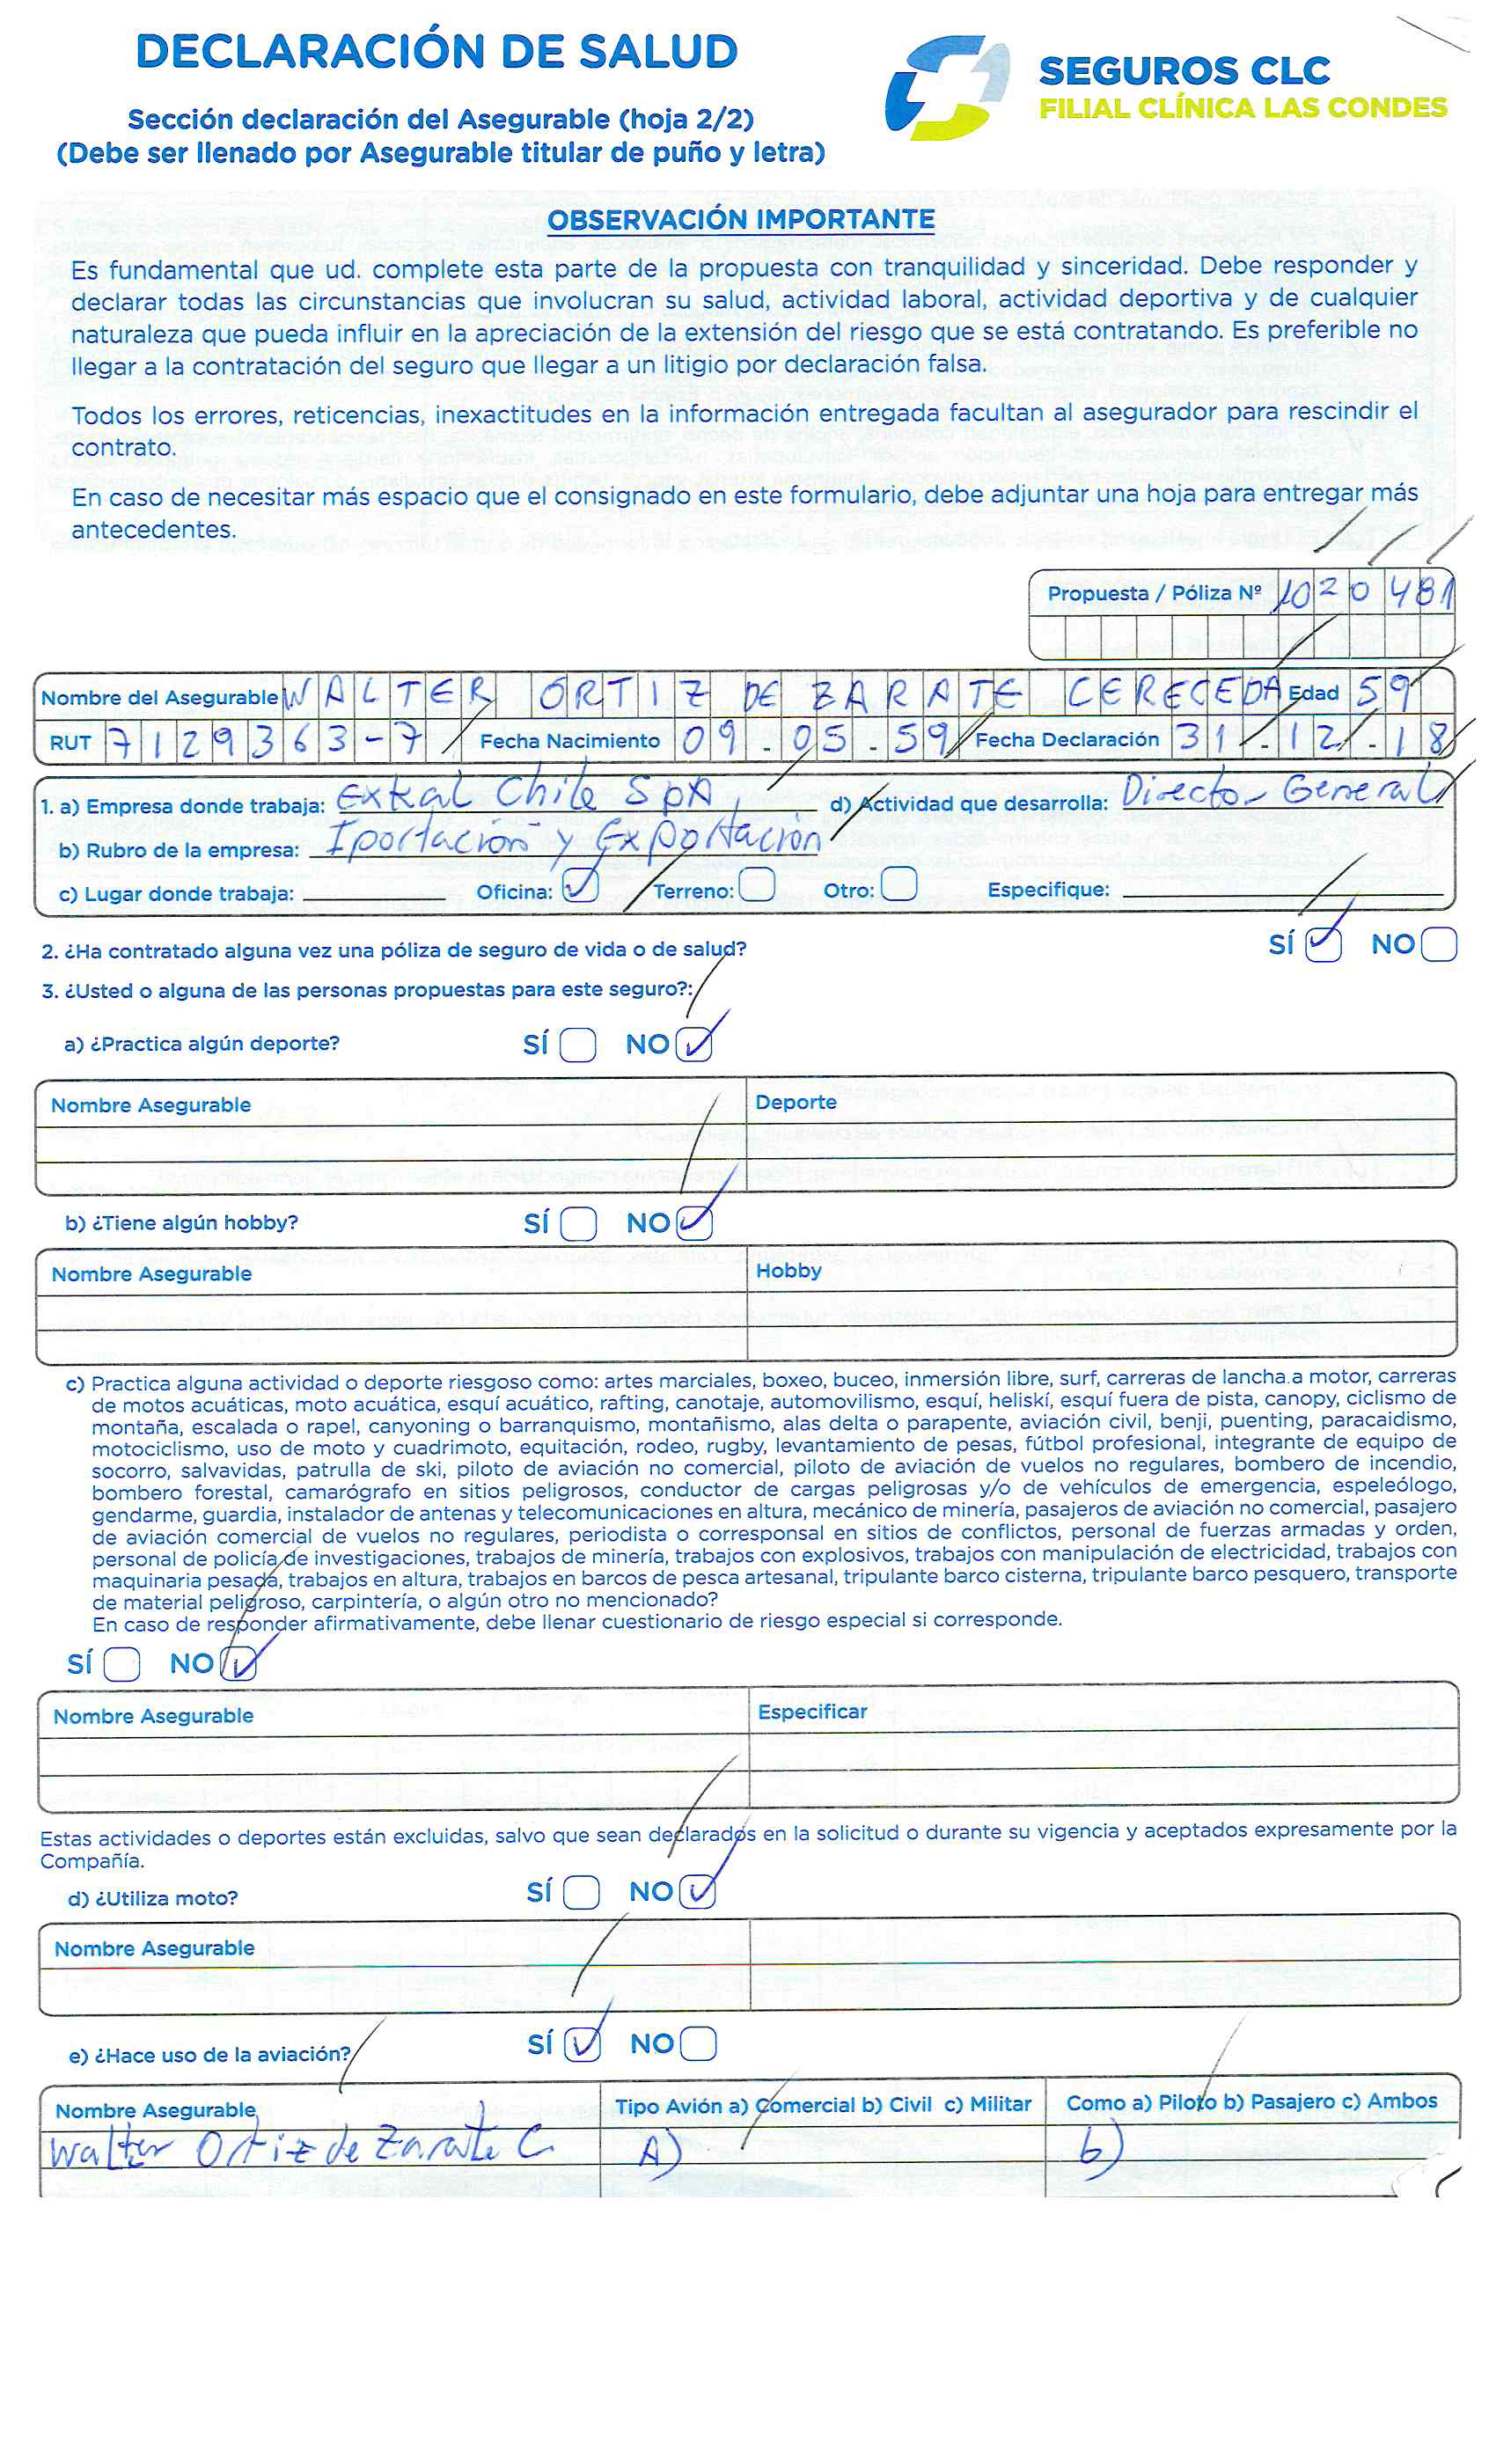 DECLARACIÓN DE SALUD
Sección declaración del Asegurable (hoja 2/2)
(Debe ser llenado por Asegurable titular de puño y letra)
SEGUROS CLC
FILIAL CLÍNICA LAS CONDES
OBSERVACIÓN IMPORTANTE
Es fundamental que ud. complete esta parte de la propuesta con tranquilidad y sinceridad. Debe responder y
declarar todas las circunstancias que involucran su salud, actividad laboral, actividad deportiva y de cualquier
naturaleza que pueda influir en la apreciación de la extensión del riesgo que se está contratando. Es preferible no
llegar a la contratación del seguro que llegar a un litigio por declaración falsa.
Todos los errores, reticencias, inexactitudes en la información entregada facultan al asegurador para rescindir el
contrato.
En caso de necesitar más espacio que el consignado en este formulario, debe adjuntar una hoja para entregar más
antecedentes.
Propuesta / Póliza Nº 1020481
Nombre del Asegurable WALTER ORTIZ DE ZARATE CERECEDA Edad 59
RUT 7129363-7 Fecha Nacimiento 09.05.59 Fecha Declaración 31.12.18
1. a) Empresa donde trabaja: Extral Chile SpA d) Actividad que desarrolla: Director General
b) Rubro de la empresa: Iportación y Exportación
c) Lugar donde trabaja: Oficina: ✓ Terreno: Otro: Especifique:
2. ¿Ha contratado alguna vez una póliza de seguro de vida o de salud? SÍ ✓ NO
3. ¿Usted o alguna de las personas propuestas para este seguro?:
a) ¿Practica algún deporte? SÍ NO ✓
Nombre Asegurable Deporte
b) ¿Tiene algún hobby? SÍ NO ✓
Nombre Asegurable Hobby
c) Practica alguna actividad o deporte riesgoso como: artes marciales, boxeo, buceo, inmersión libre, surf, carreras de lancha a motor, carreras
de motos acuáticas, moto acuática, esquí acuático, rafting, canotaje, automovilismo, esquí, heliskí, esquí fuera de pista, canopy, ciclismo de
montaña, escalada o rapel, canyoning o barranquismo, montañismo, alas delta o parapente, aviación civil, benji, puenting, paracaidismo,
motociclismo, uso de moto y cuadrimoto, equitación, rodeo, rugby, levantamiento de pesas, fútbol profesional, integrante de equipo de
socorro, salvavidas, patrulla de ski, piloto de aviación no comercial, piloto de aviación de vuelos no regulares, bombero de incendio,
bombero forestal, camarógrafo en sitios peligrosos, conductor de cargas peligrosas y/o de vehículos de emergencia, espeleólogo,
gendarme, guardia, instalador de antenas y telecomunicaciones en altura, mecánico de minería, pasajeros de aviación no comercial, pasajero
de aviación comercial de vuelos no regulares, periodista o corresponsal en sitios de conflictos, personal de fuerzas armadas y orden,
personal de policía de investigaciones, trabajos de minería, trabajos con explosivos, trabajos con manipulación de electricidad, trabajos con
maquinaria pesada, trabajos en altura, trabajos en barcos de pesca artesanal, tripulante barco cisterna, tripulante barco pesquero, transporte
de material peligroso, carpintería, o algún otro no mencionado?
En caso de responder afirmativamente, debe llenar cuestionario de riesgo especial si corresponde.
SÍ NO ✓
Nombre Asegurable Especificar
Estas actividades o deportes están excluidas, salvo que sean declarados en la solicitud o durante su vigencia y aceptados expresamente por la
Compañía.
d) ¿Utiliza moto? SÍ NO ✓
Nombre Asegurable
e) ¿Hace uso de la aviación? SÍ ✓ NO
Nombre Asegurable Tipo Avión a) Comercial b) Civil c) Militar Como a) Piloto b) Pasajero c) Ambos
Walter Ortiz de Zarate C. A) b)